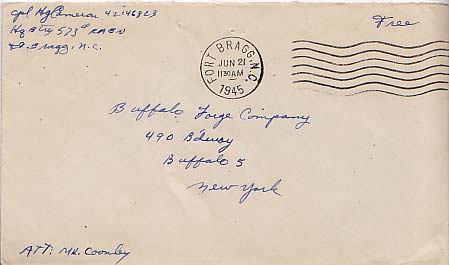 Cpl HG Cameron 42146823
Hq Btry 573d FABN
Ft. Bragg, N.C.
Free
FORT BRAGG, N.C.
JUN 21
1130AM
1945
Buffalo Forge Company
490 Bdway
Buffalo 5
New York
ATT: MR. Coonley